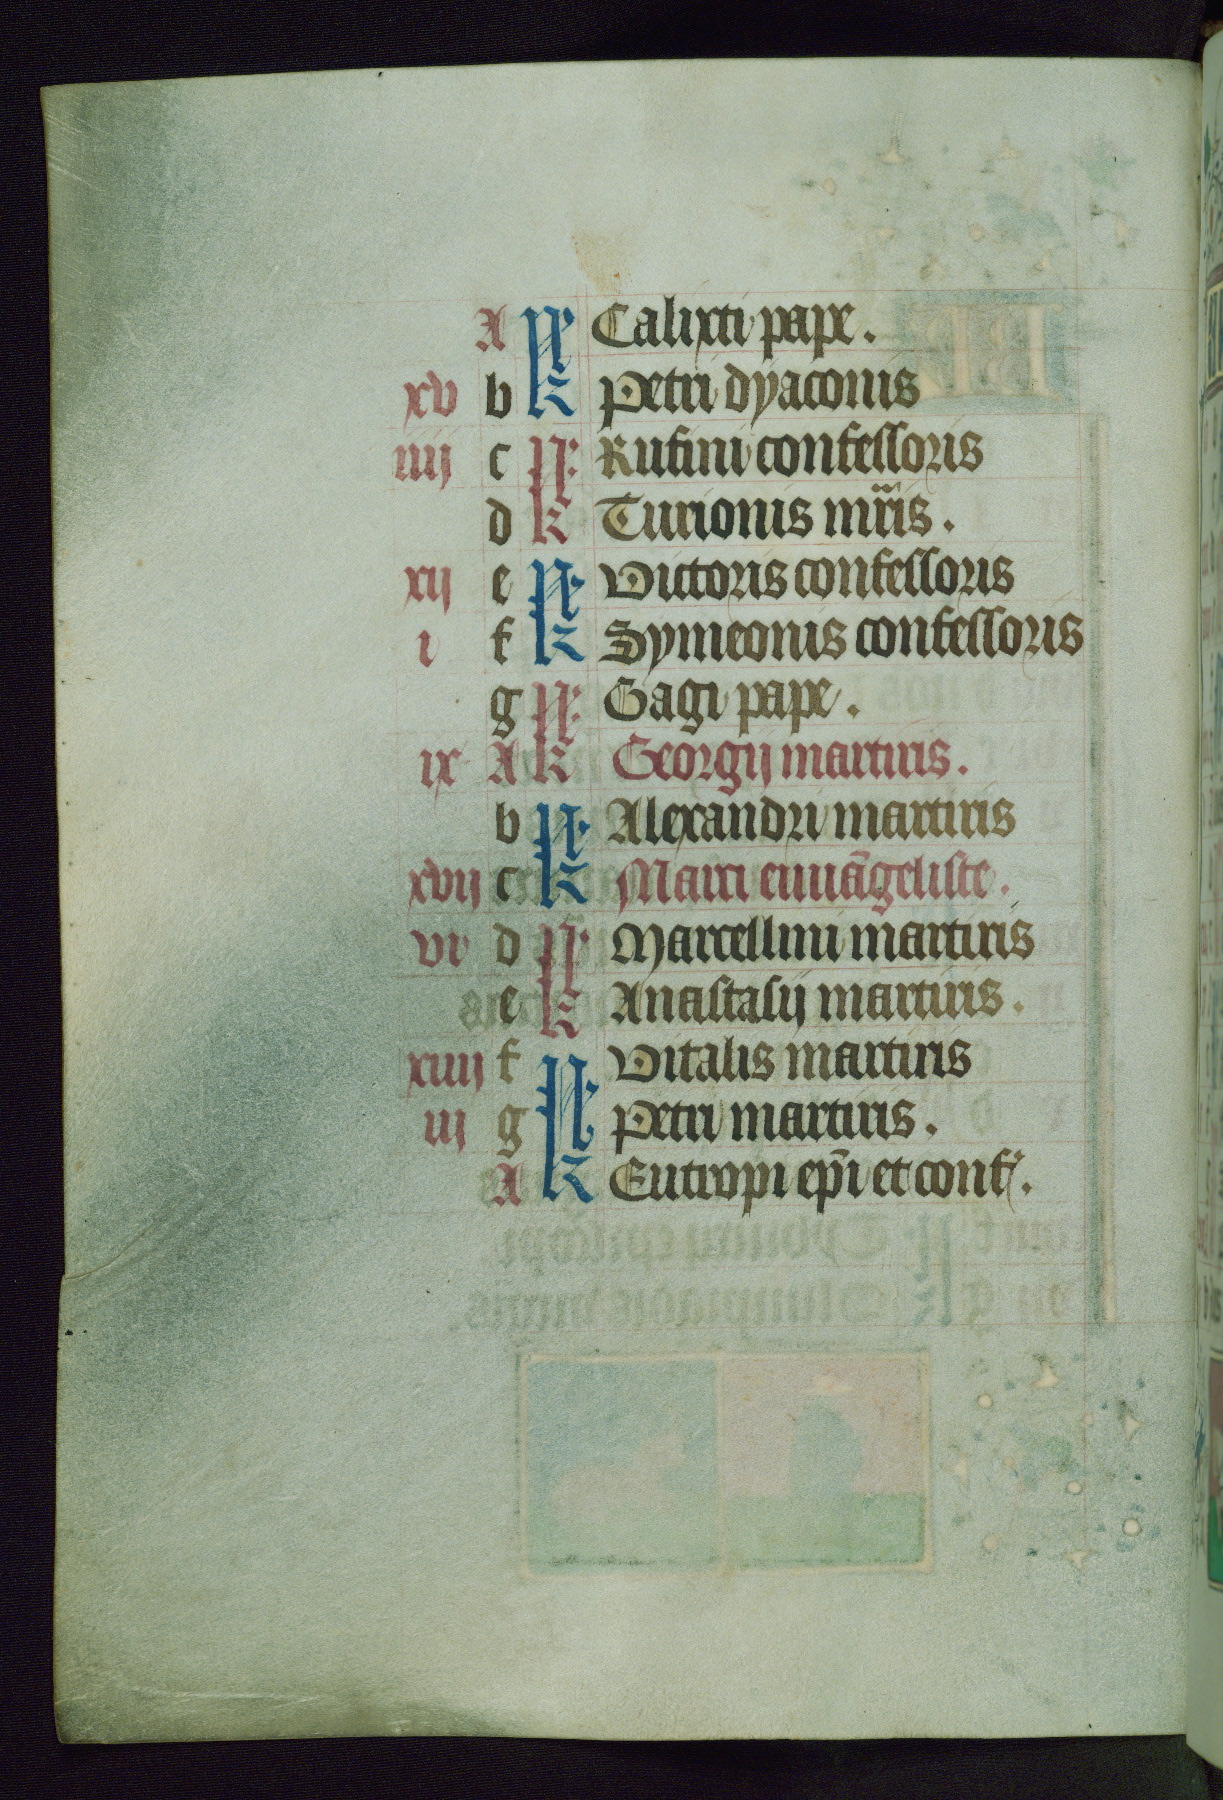 A Calixti pape.
xv b k Petri dyaconis
iiij c Rufini confessoris
d k Turionis mr̃is.
xij e Victoris confessoris
i f k Symeonis confessoris
g Gagi pape.
ix A k Georgij martiris.
b Alexandri martiris
xvij c k Marci euuãgeliste.
vi d Marcellini martiris
e k Anastasij martiris.
xiiij f Vitalis martiris
iij g Petri martiris.
A k Eutropi ep̃i et conf.